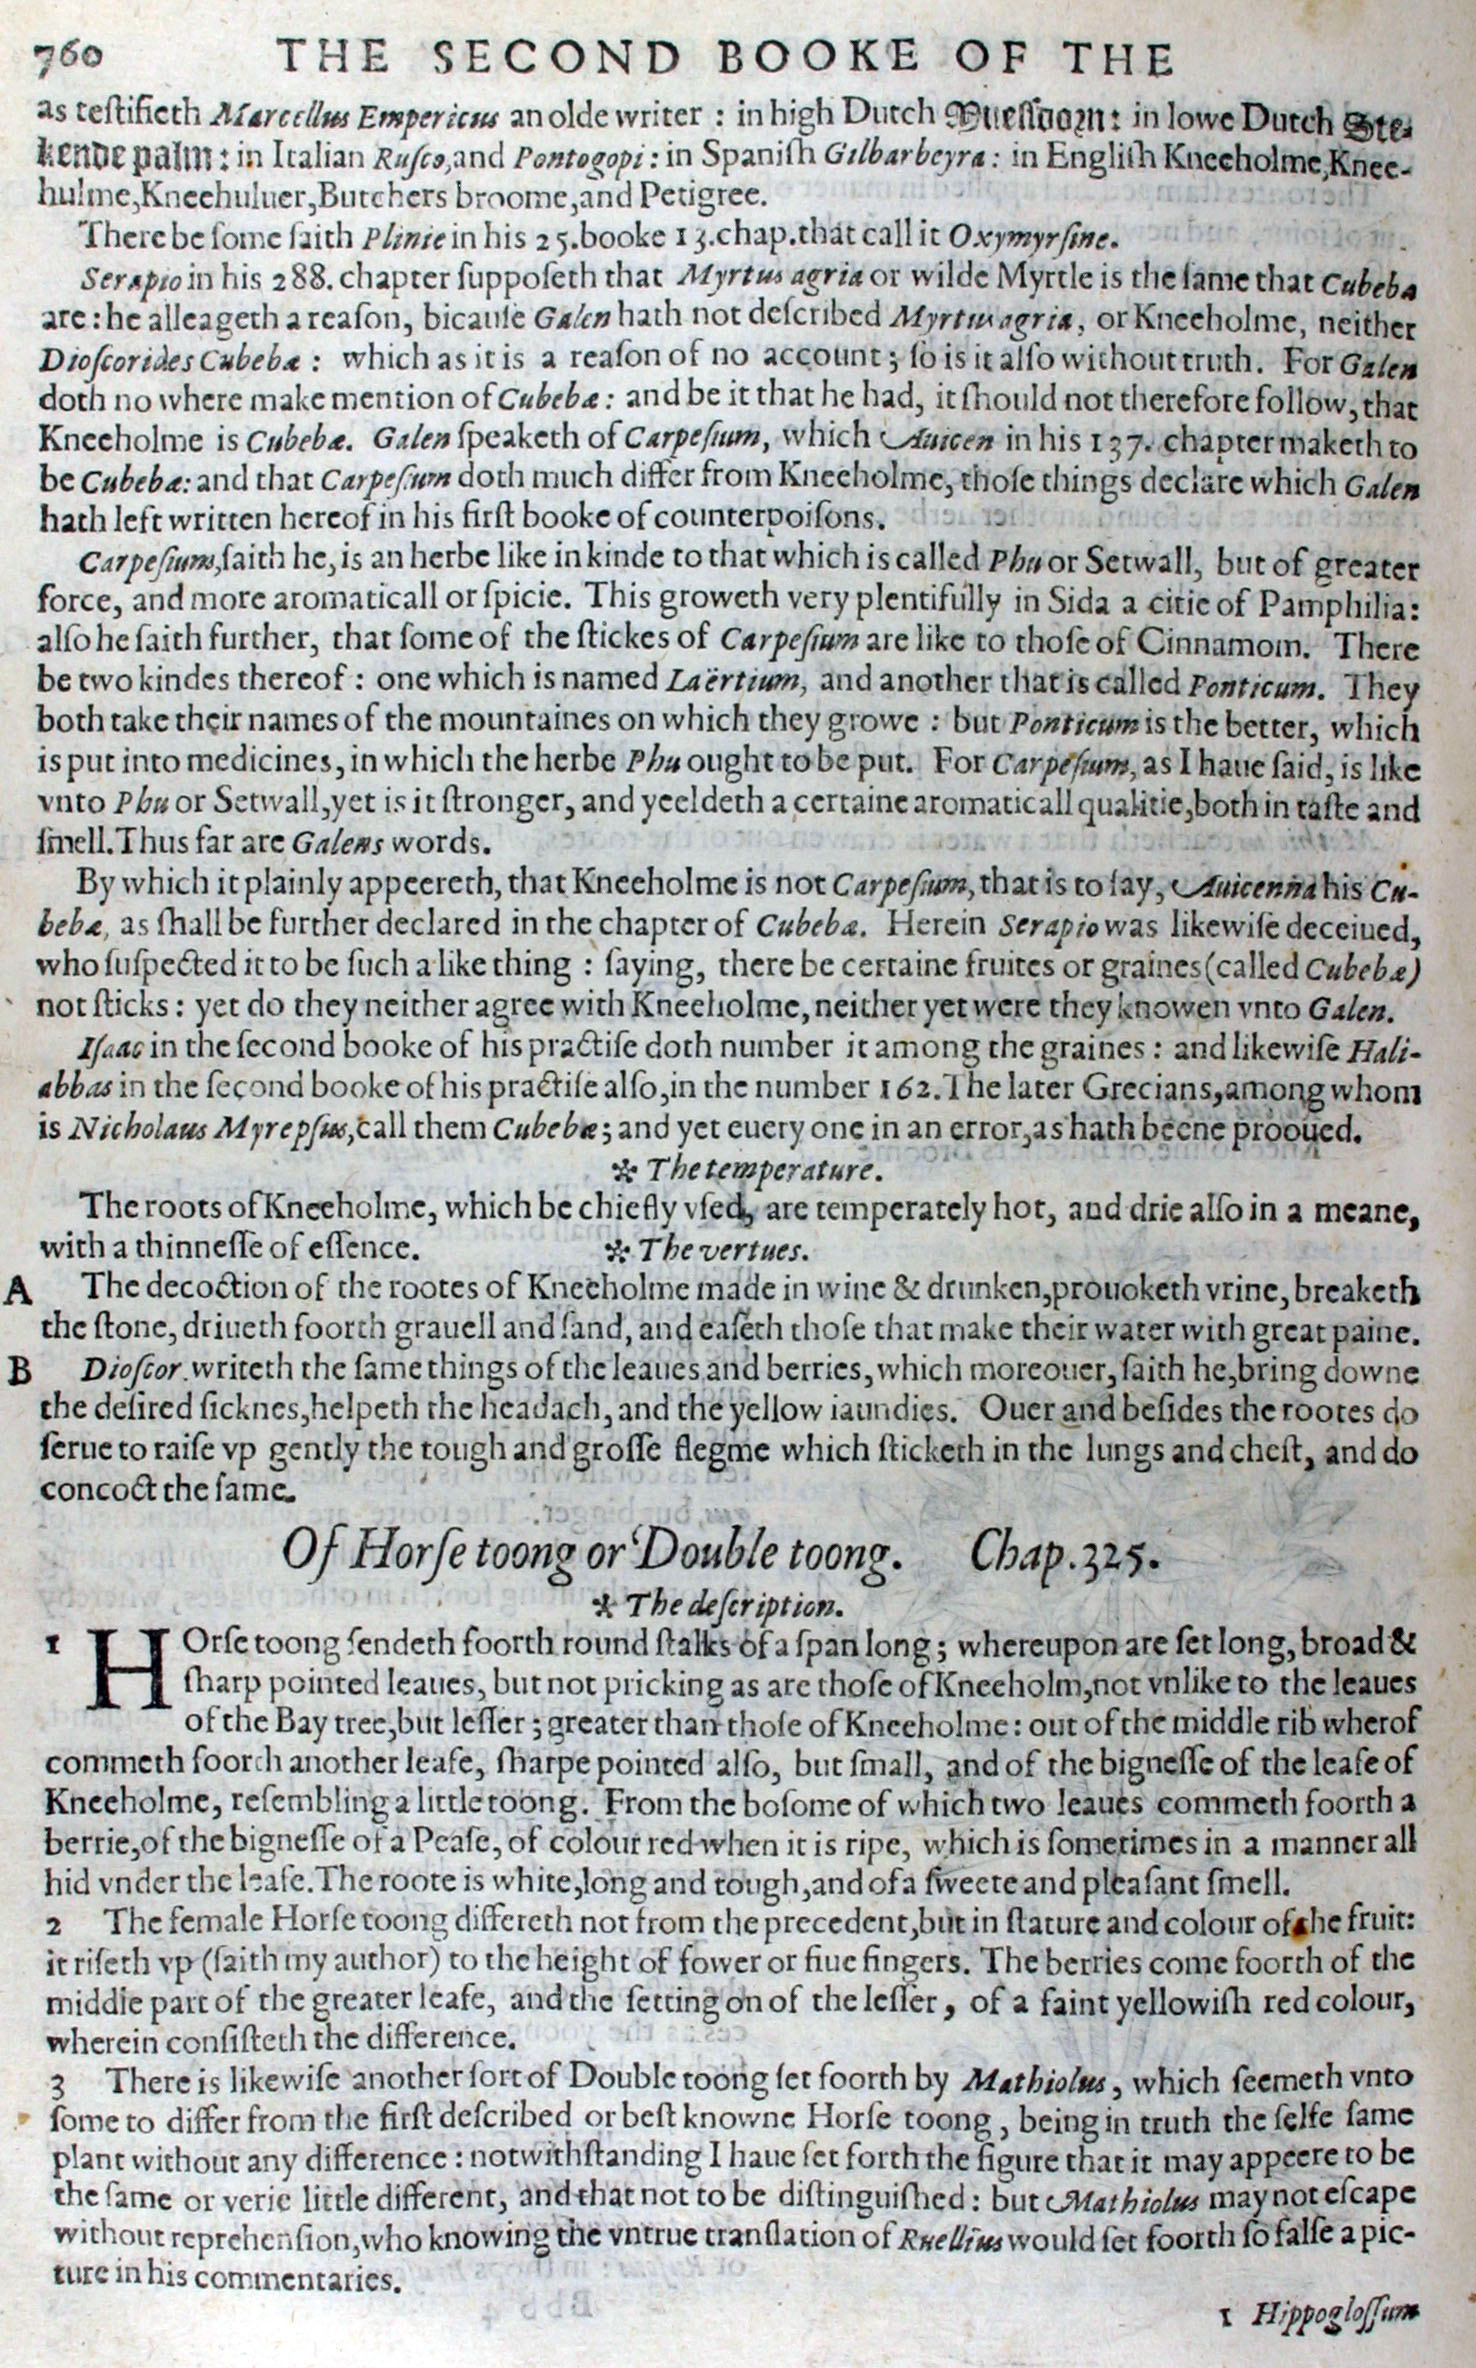 760 THE SECOND BOOKE OF THE
as teſtifieth Marcellus Empericus an olde writer : in high Dutch Mueſdorn: in lowe Dutch Ste-
kende palm: in Italian Ruſco,and Pontogopi: in Spaniſh Gilbarbeyra: in Engliſh Kneeholme,Knee-
hulme,Kneehuluer,Butchers broome,and Petigree.
There be ſome ſaith Plinie in his 25.booke 13.chap.that call it Oxymyrſine.
Serapio in his 288. chapter ſuppoſeth that Myrtus agria or wilde Myrtle is the ſame that Cubebæ
are: he alleageth a reaſon, bicauſe Galen hath not deſcribed Myrtus agria, or Kneeholme, neither
Dioſcorides Cubebæ : which as it is a reaſon of no account; ſo is it alſo without truth. For Galen
doth no where make mention of Cubebæ: and be it that he had, it ſhould not therefore follow, that
Kneeholme is Cubebæ. Galen ſpeaketh of Carpeſium, which Auicen in his 137. chapter maketh to
be Cubebæ: and that Carpeſium doth much differ from Kneeholme, thoſe things declare which Galen
hath left written hereof in his firſt booke of counterpoiſons.
Carpeſium,ſaith he, is an herbe like in kinde to that which is called Phu or Setwall, but of greater
force, and more aromaticall or ſpicie. This groweth very plentifully in Sida a citie of Pamphilia:
alſo he ſaith further, that ſome of the ſtickes of Carpeſium are like to thoſe of Cinnamom. There
be two kindes thereof : one which is named Laërtium, and another that is called Ponticum. They
both take their names of the mountaines on which they growe : but Ponticum is the better, which
is put into medicines, in which the herbe Phu ought to be put. For Carpeſium, as I haue ſaid, is like
vnto Phu or Setwall,yet is it ſtronger, and yeeldeth a certaine aromaticall qualitie,both in taſte and
ſmell. Thus far are Galens words.
By which it plainly appeereth, that Kneeholme is not Carpeſium, that is to ſay, Auicenna his Cu-
bebæ, as ſhall be further declared in the chapter of Cubebæ. Herein Serapio was likewiſe deceiued,
who ſuſpected it to be ſuch a like thing : ſaying, there be certaine fruites or graines (called Cubebæ)
not ſticks: yet do they neither agree with Kneeholme, neither yet were they knowen vnto Galen.
Iſaac in the ſecond booke of his practiſe doth number it among the graines : and likewiſe Hali-
abbas in the ſecond booke of his practiſe alſo,in the number 162. The later Grecians,among whom
is Nicholaus Myrepſus,call them Cubebæ; and yet euery one in an error,as hath beene prooued.
✲ The temperature.
The roots of Kneeholme, which be chiefly vſed, are temperately hot, and drie alſo in a meane,
with a thinneſſe of eſſence. ✲ The vertues.
A The decoction of the rootes of Kneeholme made in wine & drunken,prouoketh vrine, breaketh
the ſtone, driueth foorth grauell and ſand, and eaſeth thoſe that make their water with great paine.
B Dioſcor. writeth the ſame things of the leaues and berries, which moreouer, ſaith he,bring downe
the deſired ſicknes,helpeth the headach, and the yellow iaundies. Ouer and beſides the rootes do
ſerue to raiſe vp gently the tough and groſſe flegme which ſticketh in the lungs and cheſt, and do
concoct the ſame.
Of Horſe toong or Double toong. Chap.325.
✲ The deſcription.
1 HOrſe toong ſendeth foorth round ſtalks of a ſpan long; whereupon are ſet long, broad &
ſharp pointed leaues, but not pricking as are thoſe of Kneeholm,not vnlike to the leaues
of the Bay tree,but leſſer ; greater than thoſe of Kneeholme: out of the middle rib wherof
commeth foorth another leafe, ſharpe pointed alſo, but ſmall, and of the bigneſſe of the leafe of
Kneeholme, reſembling a little toong. From the boſome of which two leaues commeth foorth a
berrie,of the bigneſſe of a Peaſe, of colour red when it is ripe, which is ſometimes in a manner all
hid vnder the leafe. The roote is white,long and tough,and of a ſweete and pleaſant ſmell.
2 The female Horſe toong differeth not from the precedent,but in ſtature and colour of the fruit:
it riſeth vp (ſaith my author) to the height of fower or fiue fingers. The berries come foorth of the
middle part of the greater leafe, and the ſetting on of the leſſer, of a faint yellowiſh red colour,
wherein conſiſteth the difference.
3 There is likewiſe another ſort of Double toong ſet foorth by Mathiolus, which ſeemeth vnto
ſome to differ from the firſt deſcribed or beſt knowne Horſe toong, being in truth the ſelfe ſame
plant without any difference : notwithſtanding I haue ſet forth the figure that it may appeere to be
the ſame or verie little different, and that not to be diſtinguiſhed : but Mathiolus may not eſcape
without reprehenſion,who knowing the vntrue tranſlation of Ruellius would ſet foorth ſo falſe a pic-
ture in his commentaries.
1 Hippogloſſum